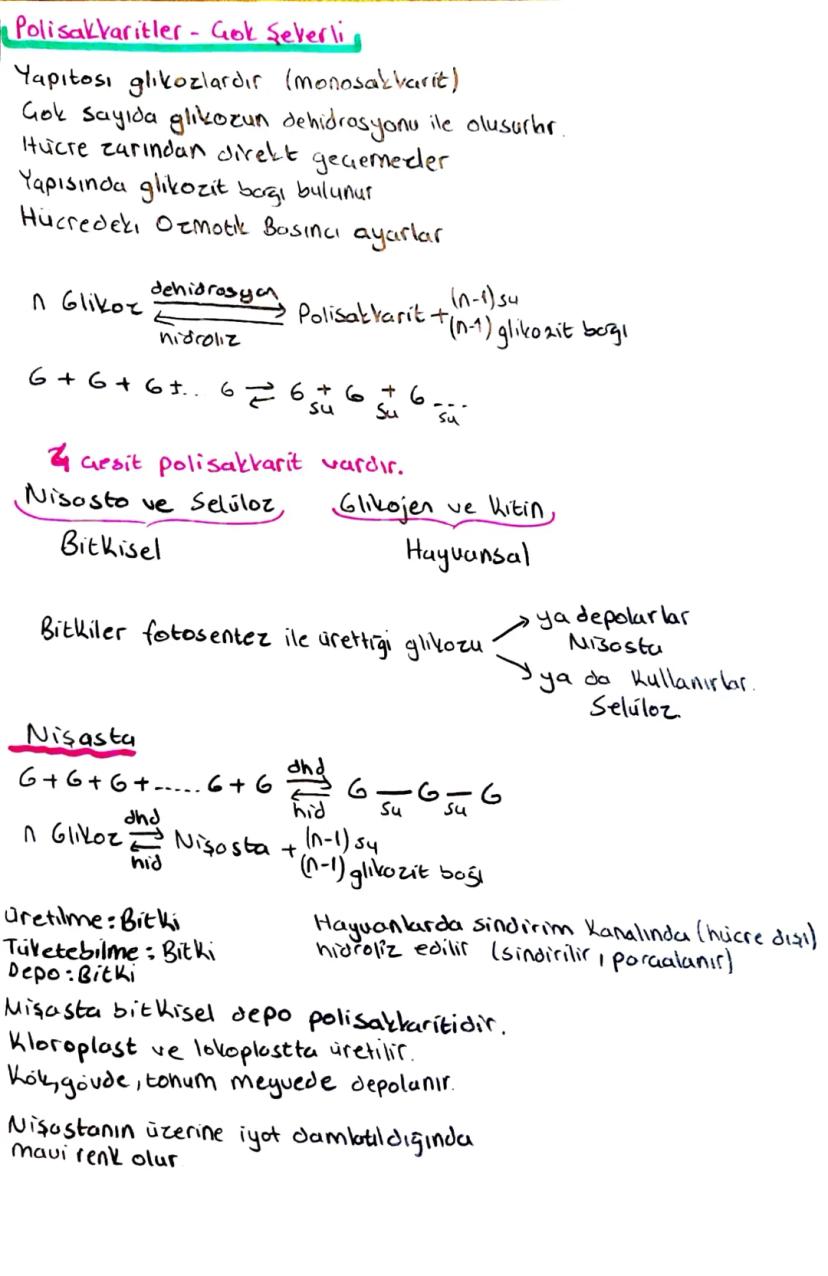 Polisakkaritler - Çok Şekerli
Yapıtası glikozlardır (monosakkarit)
Çok sayıda glikozun dehidrasyonu ile olusurlır.
Hücre zarından direkt geçemezler
Yapısında glikozit bağı bulunur
Hücredeki Ozmotik Basıncı ayarlar
n Glikoz dehidrasyon ⇌ hidroliz Polisakkarit + (n-1) su
(n-1) glikozit bağı
G + G + G + .. G ⇌ G + G + G ---
su su su
4 çeşit polisakkarit vardır.
Nisasta ve Selüloz Glikojen ve Kitin
Bitkisel Hayvansal
Bitkiler fotosentez ile ürettiği glikozu → ya depolarlar
Nişasta
→ ya da kullanırlar.
Selüloz
Nişasta
G+G+G+......G+G dhd ⇌ hid G — G — G
su su
n Glikoz dhd ⇌ hid Nişasta + (n-1) su
(n-1) glikozit bağı
Üretilme: Bitki
Tüketebilme: Bitki
Depo: Bitki
Hayvanlarda sindirim kanalında (hücre dışı)
hidroliz edilir (sindirilir, parçalanır)
Nişasta bitkisel depo polisakkaritidir.
Kloroplast ve lökoplastta üretilir.
Kök, gövde, tohum meyvede depolanır.
Nişastanın üzerine iyot damlatıldığında
mavi renk olur